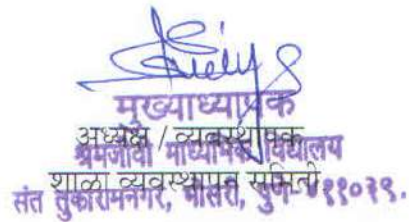 मुख्याध्यापक
अध्यक्ष / व्यवस्थापक
श्रमजीवी माध्यमिक विद्यालय
शाळा व्यवस्थापन समिती
संत तुकारामनगर, भोसरी, पुणे-४११०३९.